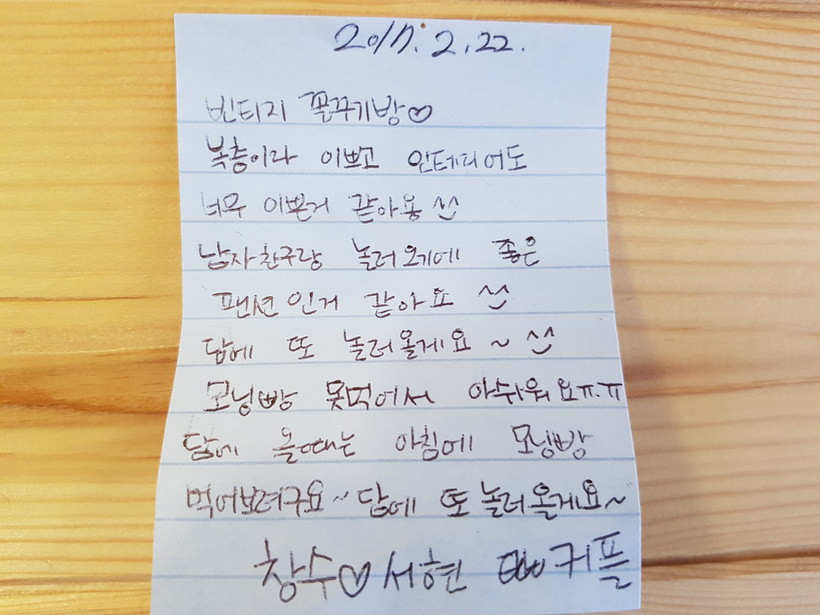 2017. 2. 22.
빈티지 꿈꾸기방♡
복층이라 이쁘고 인테리어도
너무 이쁜거 같아용 ^^
남자친구랑 놀러오기에 좋은
팬션인거 같아요 ^^
담에 또 놀러올게요~ ^^
모닝빵 못먹어서 아쉬워요ㅠ.ㅠ
담에 올때는 아침에 모닝빵
먹어보려구요~ 담에 또 놀러올게요~
창수♡서현 커플